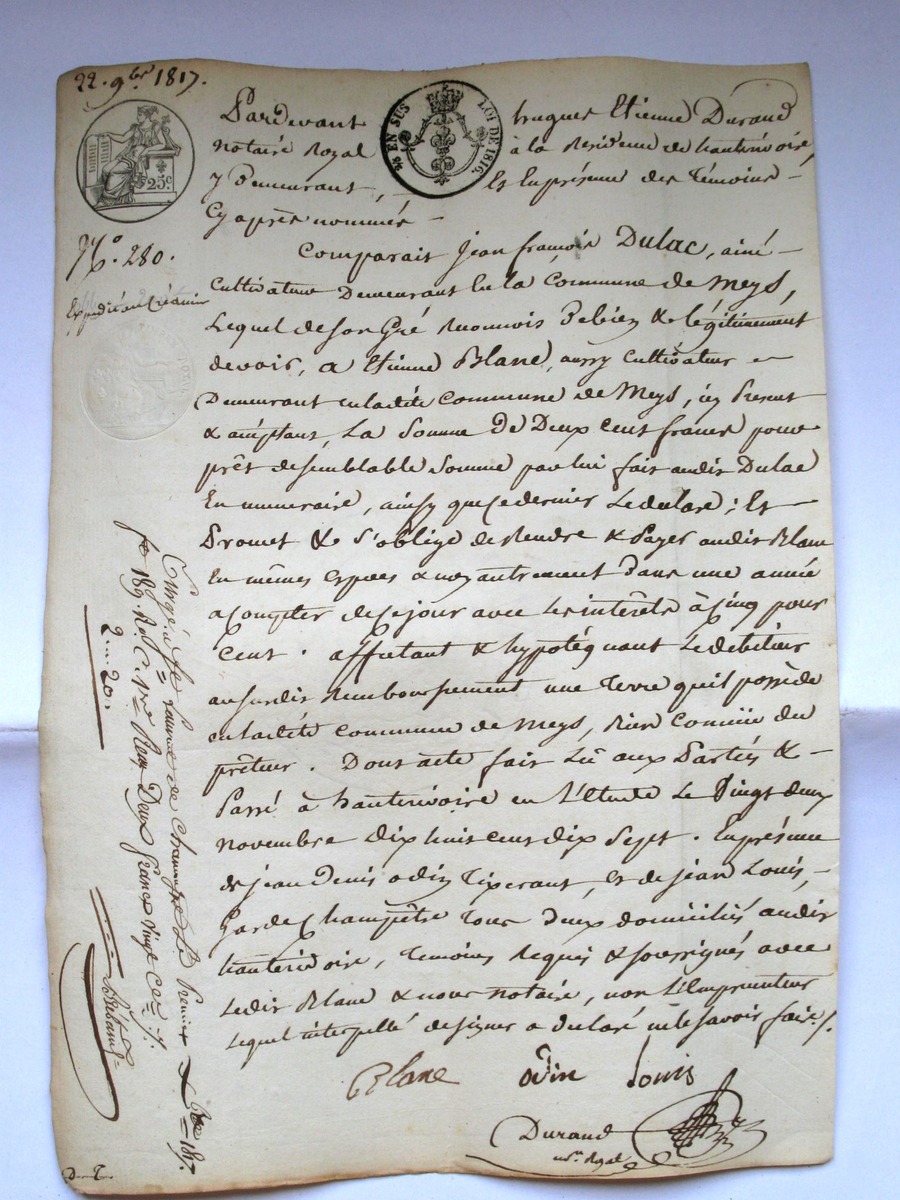 22. 9bre 1817.
25c
EN SUS LOI DE 1816.
Pardevant hugues Etienne Durand
notaire Royal à la Residence de hauterivoire,
y Demeurant, Et En présence des Témoins
Cy après nommés
N.o 280.
Comparait Jean françois Dulac, ainé
Cultivateur Demeurant En la Commune de Meys,
Expédié au Créancier
Lequel de son Gré Reconnois Debien & légitimement
devoir, a Etienne Blanc, aussy Cultivateur
Demeurant en ladite Commune de Meys, icy Present
& acceptant, La Somme de Deux cent francs pour
prêt de semblable Somme par lui fait audit Dulac
En numeraire, ainsy que ce dernier Le declare; Et
Promet & s'oblige de Rendre & Payer audit Blanc
En mêmes especes & non autrement Dans une année
a Compter de ce jour avec Les intérêts à Cinq pour
Cent. affectant & hypotéquant Le debiteur
au susdit Remboursement une Terre quil possède
en ladite Commune de Meys, Bien Connue du
prêteur. Dont acte fait Lû aux Parties &
Passé à hauterivoire en L'Etude Le Vingt deux
novembre dix huit cent dix Sept. En présence
de jean Denis odin Tixerant, et de jean Louis,
Garde Champêtre Tous Deux domiciliés audit
hauterivoire, Temoins Requis & soussignés avec
Ledit Blanc & nous notaire, non L'Emprunteur
Lequel interpellé de signer a declaré ne le savoir faire /.
Blanc odin Louis
Durand
nre Royal
Enregé à St Laurent de Chamousset Le Premier Xbre 1817
fo 189. Ro C. 1re Reçu Deux francs vingt Cent.
2 = 20
D T